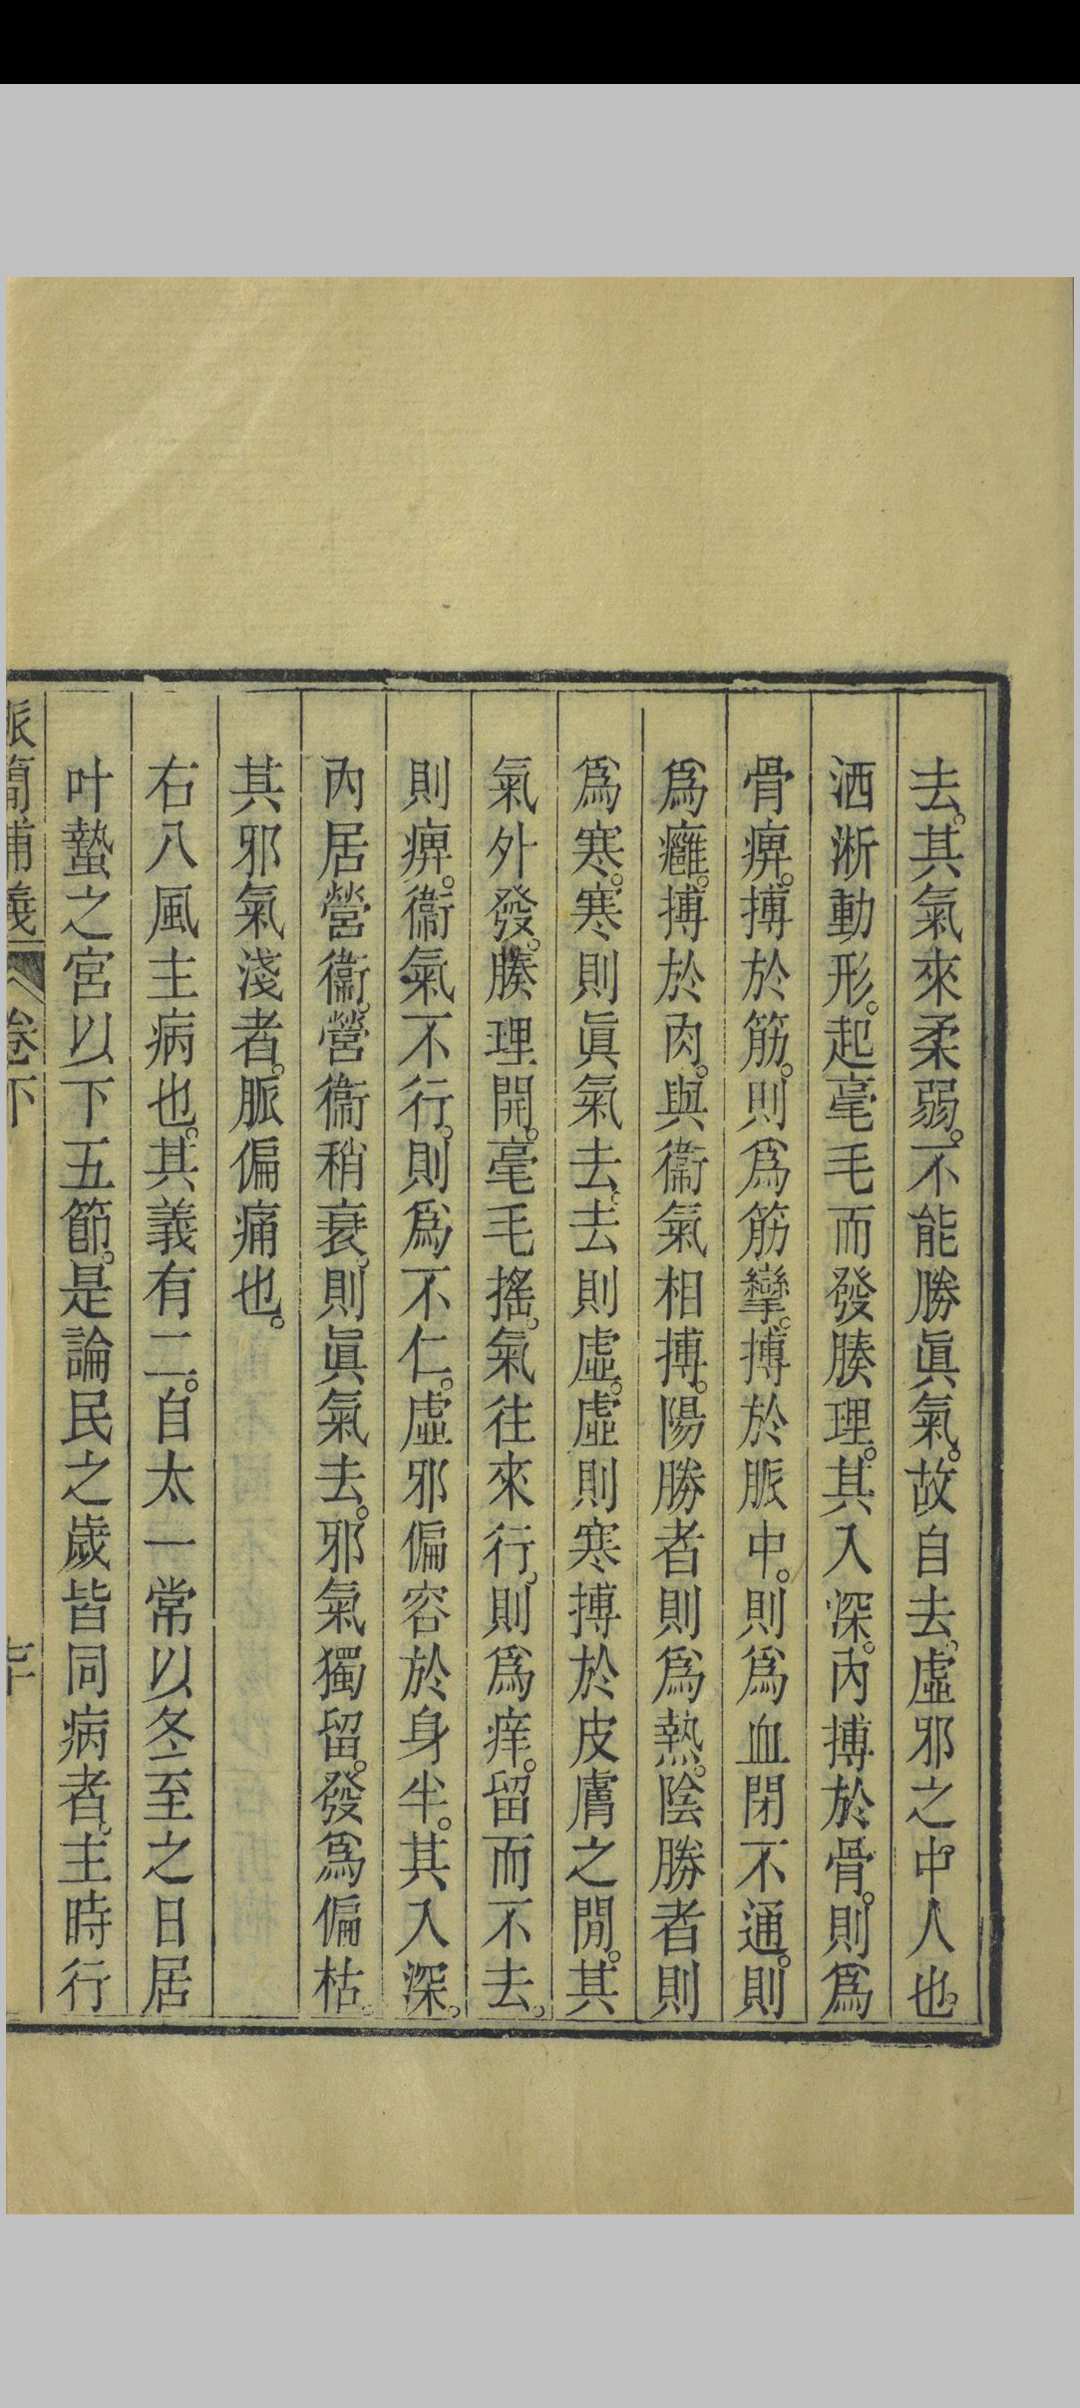 去。其氣來柔弱。不能勝眞氣。故自去。虛邪之中人也。
洒淅動形。起毫毛而發腠理。其入深。內搏於骨。則爲
骨痹。搏於筋。則爲筋攣。搏於脈中。則爲血閉不通。則
爲癰。搏於肉。與衞氣相搏。陽勝者則爲熱。陰勝者則
爲寒。寒則眞氣去。去則虛。虛則寒搏於皮膚之閒。其
氣外發。腠理開。毫毛搖。氣往來行。則爲痒。留而不去。
則痹。衞氣不行。則爲不仁。虛邪偏容於身半。其入深。
內居營衞。營衞稍衰。則眞氣去。邪氣獨留。發爲偏枯。
其邪氣淺者。脈偏痛也。
右八風主病也。其義有二。自太一常以冬至之日居
叶蟄之宮以下五節。是論民之歲皆同病者。主時行
脈簡補義 卷下